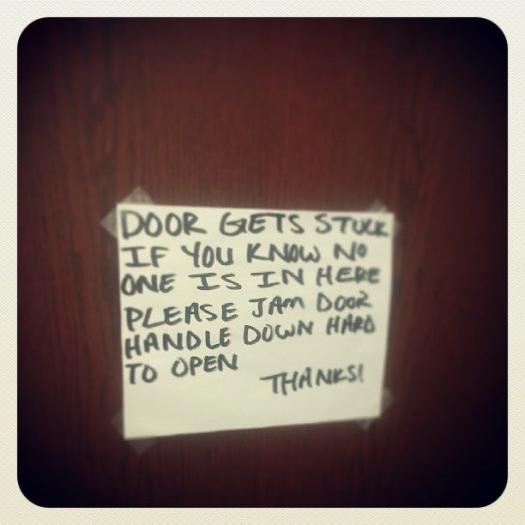 DOOR GETS STUCK
IF YOU KNOW NO
ONE IS IN HERE
PLEASE JAM DOOR
HANDLE DOWN HARD
TO OPEN
THANKS!